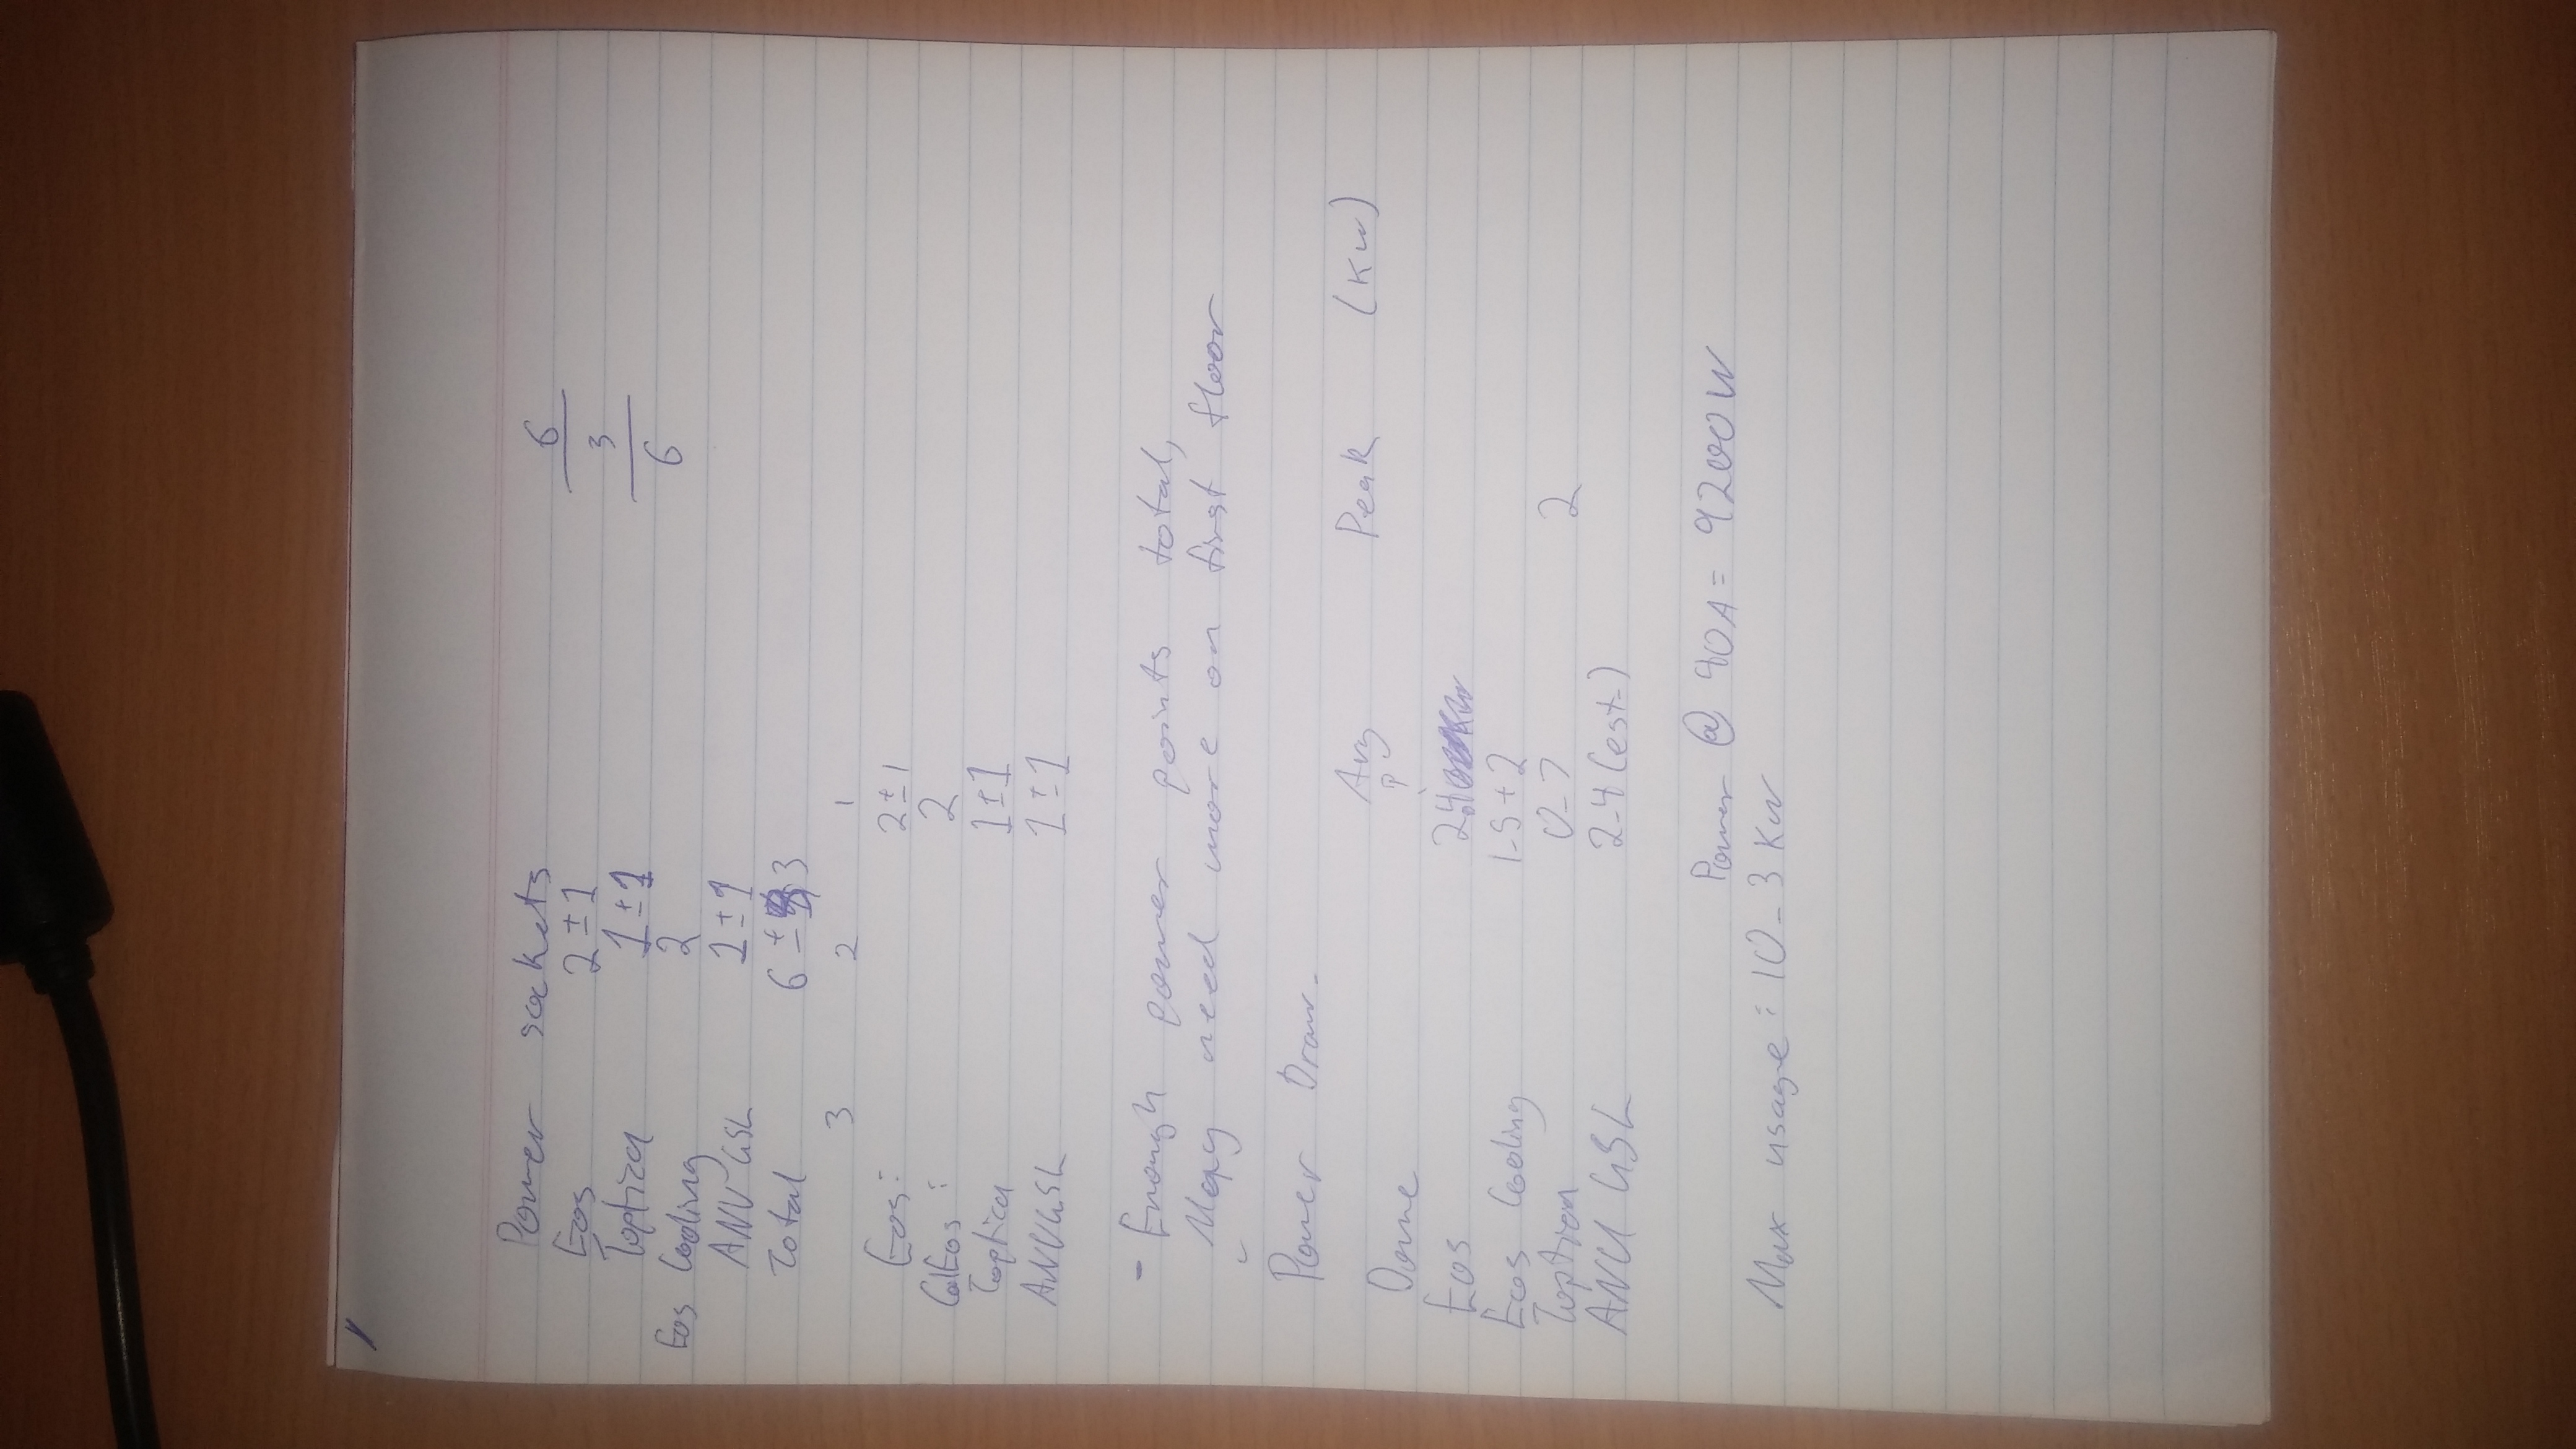 Power sockets
Eos 2 ± 1 6
Toptica 1 ± 1 3
Eos Cooling 2 6
ANU GSL 1 ± 1
Total 6 ± 3
3 2 1
Eos: 2 ± 1
Eos: 2
Toptica 1 ± 1
ANUGSL 1 ± 1
- Enough power points total,
May need more on first floor
Power Draw.
Avg Peak (kw)
Dome
Eos 2.4
Eos Cooling 1-5 + 2
Toptica 0-7 2
ANU GSL 2-4 (est.)
Power @ 40A = 9200W
Max usage: 10-3 Kw